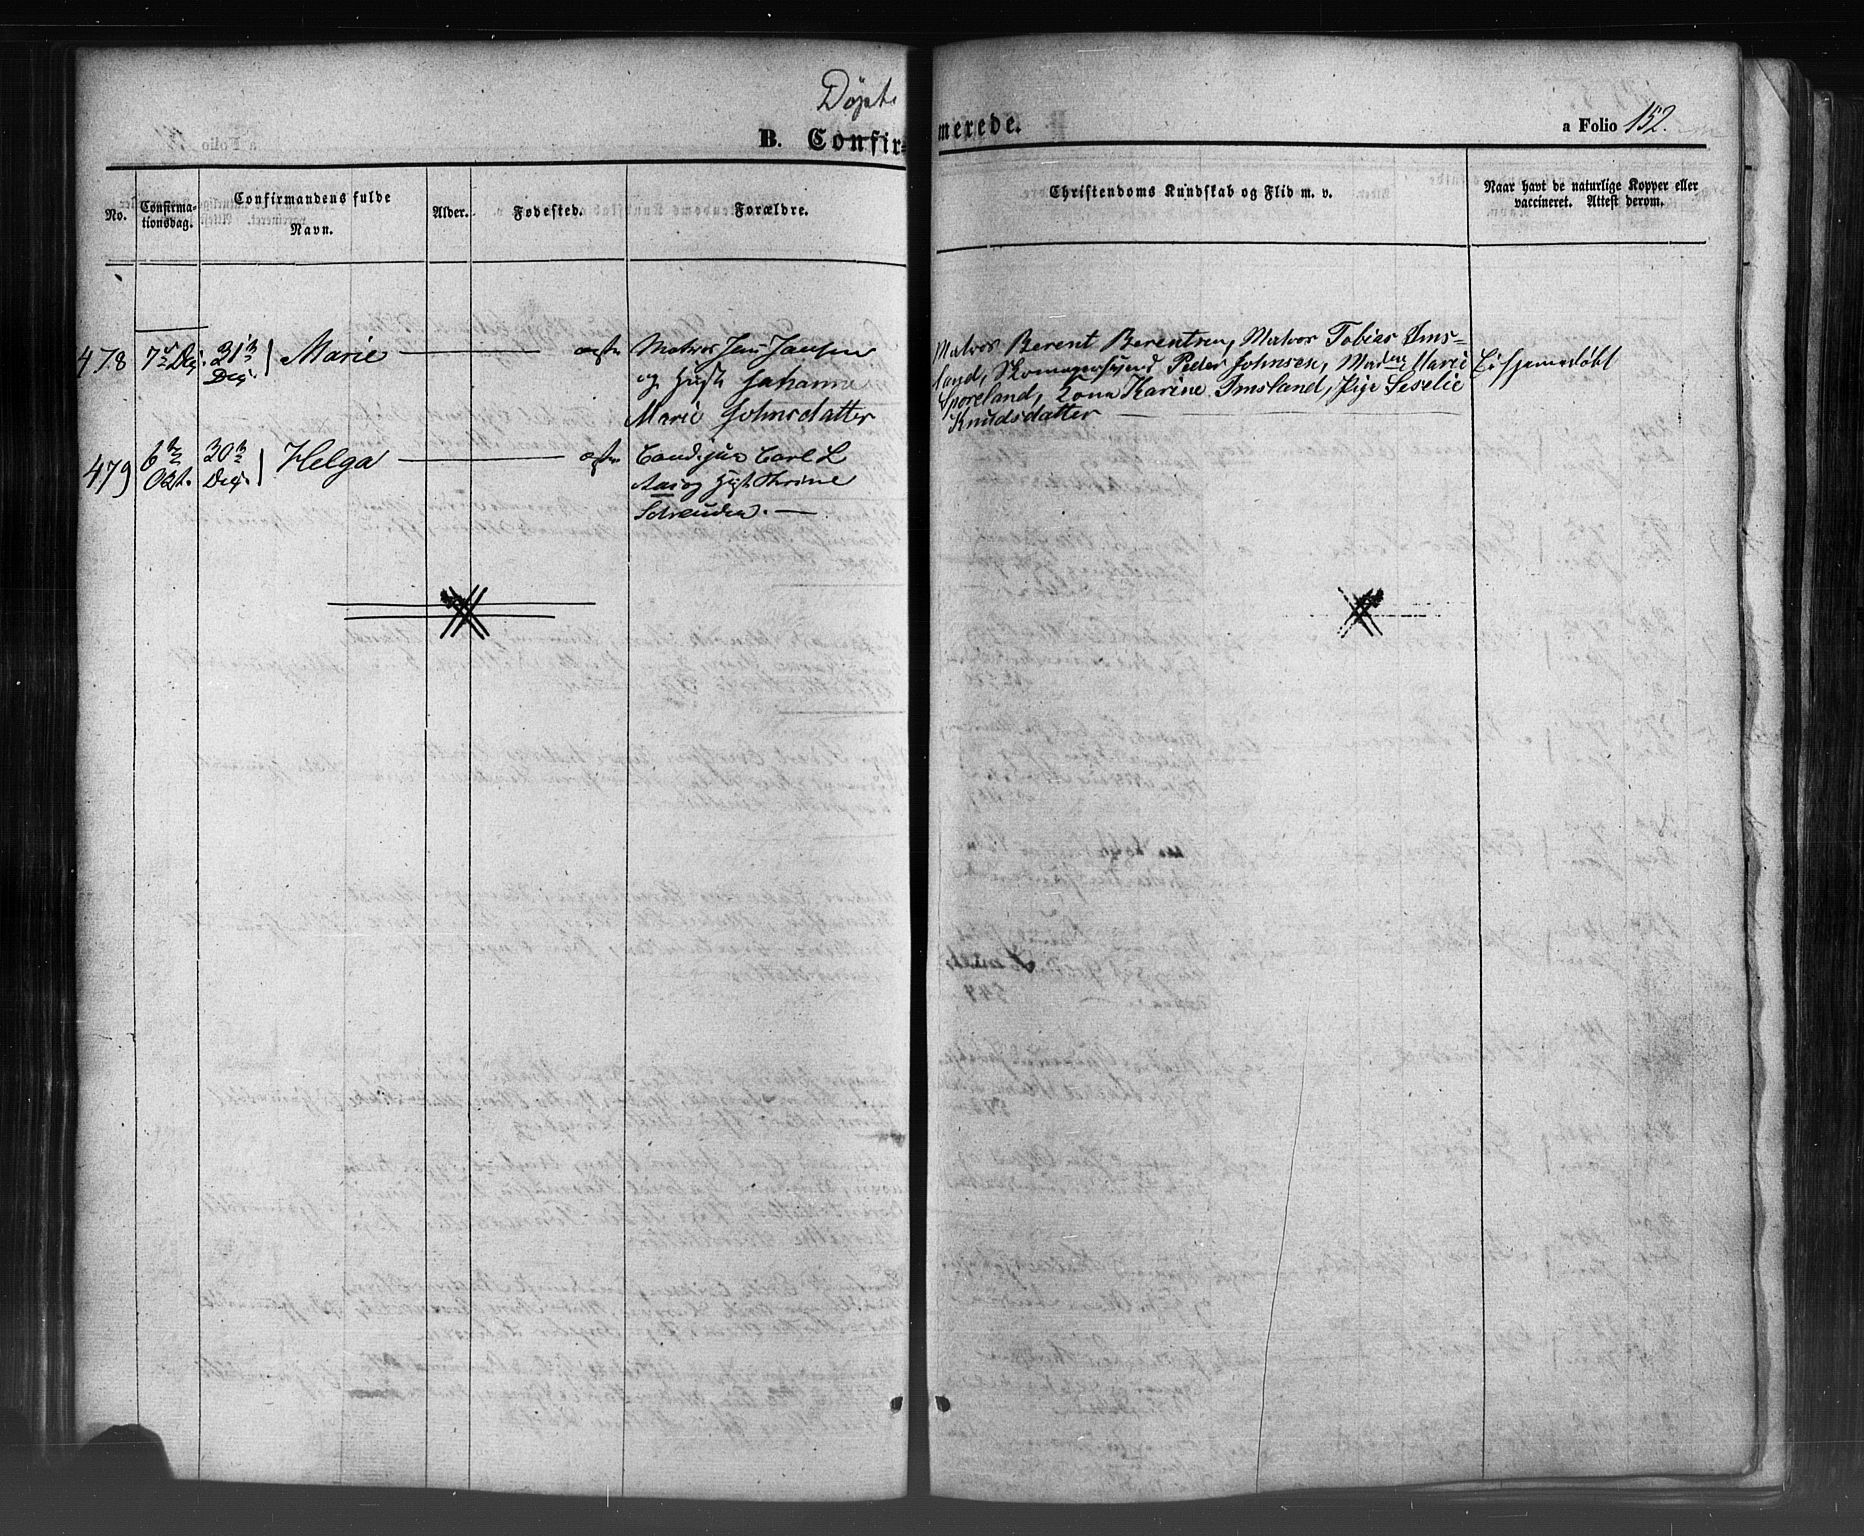 Døpte
B. Confirmerede.
a Folio 152.
No.
Confirmationsdag.
Confirmandens fulde Navn.
Alder.
Fødested.
Forældre.
Christendoms Kundskab og Flid m. v.
Naar havt de naturlige Kopper eller
vaccineret. Attest derom.
478 7de Dec. 31te Dec. Marie — ægte Matros Jens Jansen
og Hust Johanne
Marie Johnsdatter
Matros Berent Berentsen, Matros Tobias Ims-
land, Skomagersvend Peder Johnsen, Madme Marie
Sporeland, Kona Karine Imsland, Pige Seselie
Knudsdatter —
Ei hjemmedøbt
479 6te Okt. 30te Dec. Helga — ægte Cand jur Carl L
Aas og Hust Thrine
Schreuder. —